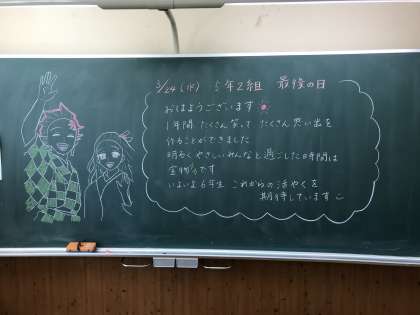 3/24（水） 5年2組 最後の日
おはようございます
1年間 たくさん笑って たくさん思い出を
作ることができました
明るく やさしいみんなと過ごした時間は
宝物です
いよいよ6年生 これからの活やくを
期待しています